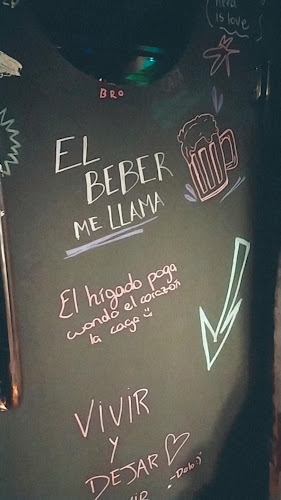 is love
BRO
EL
BEBER
ME LLAMA
El hígado paga
cuando el corazón
la caga
VIVIR
y
DEJAR
-Dolo:)
VIR